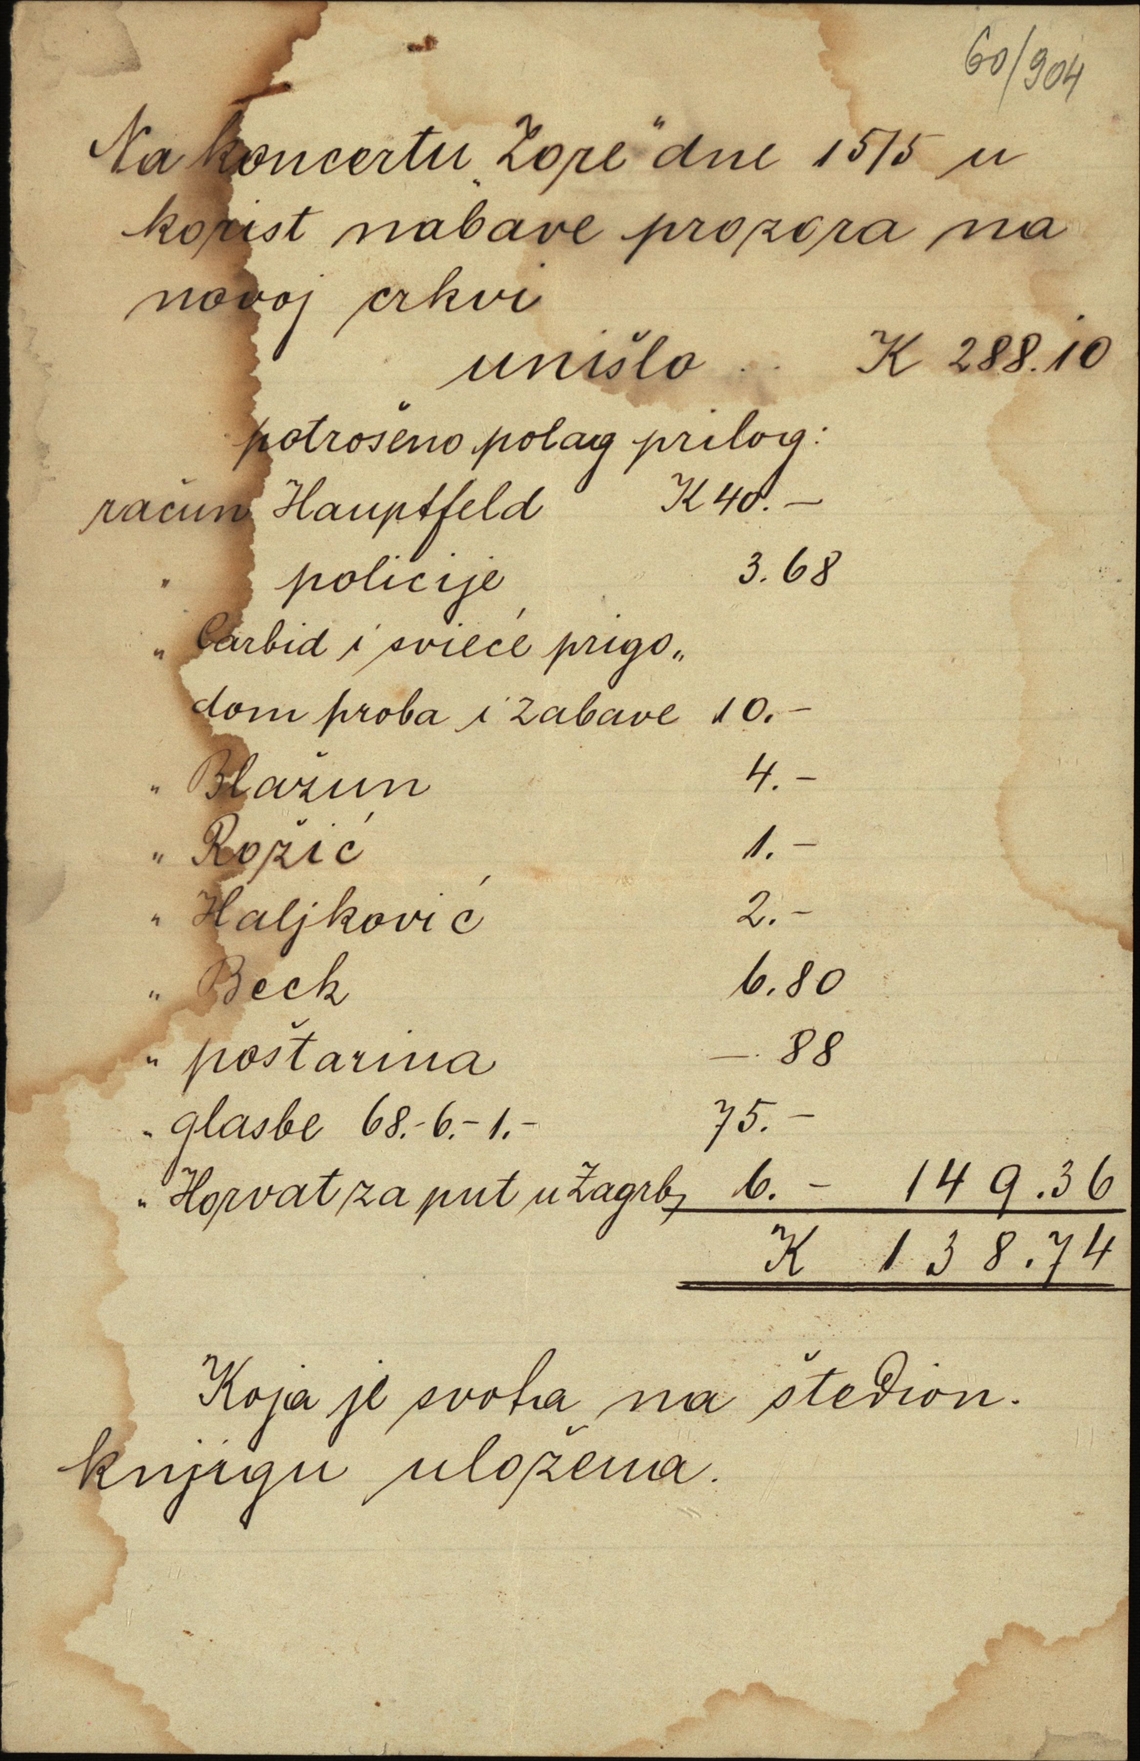 60/904
Na koncertu „Zore" dne 15/5 u
korist nabave prozora na
novoj crkvi
unišlo .. K 288.10
potrošeno polag prilog:
račun Hauptfeld K 40.—
" policije 3.68
" Carbid i svieće prigo„
dom proba i zabave 10.—
" Blažun 4.—
" Rožić 1.—
" Haljković 2.—
" Beck 6.80
" poštarina —.88
" glasbe 68.-6.-1.- 75.—
" Horvat za put u Zagrb, 6.— 149.36
K 138.74
Koja je svota na štedion.
knjigu uložena.